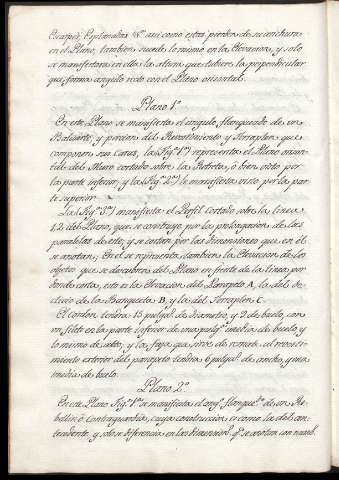 Escarpes, Esplanadas &c. asi como estas pierden de su anchura
en el Plano, tambien sucede lo mismo en la Elevacion, y solo
se manifestara en ella la altura que tubiere la perpendicular
que forma angulo recto con el Plano orisontal.
Plano 1º
En este Plano se manifiesta el angulo flanqueado de un
Baluarte, y porcion del Revestimiento y Terraplen que
componen sus Caras, la (Figª 1ª) representa el Plano orisontal
del Muro cortado sobre la Retreta, ó bien visto por
la parte inferior, y la (Figª 2ª) le manifiesta visto por la parte
superior.
La (Figª 3ª) manifiesta el Perfil Cortado sobre la linea
1,2 del Plano, que se contruye por la prolongacion de las
paralelas de este, y se cortan por las dimensiones que en el
se anotan; En el se representa tambien la Elevacion de los
objetos que se descubren del Plano en frente de la linea por
donde corta, esto es la Elevacion del Parapeto A, la del declivio
de la Banqueta B, y la del Terraplen C.
El cordon tendra 15 pulgsª de diametro, y 9 de buelo, con
un filete en la parte inferior de una pulgª y media de buelo y
lo mismo de alto, y la faja que sirve de remate al revestimiento
exterior del parapeto tendra 6 pulgsª de ancho, y una
media de buelo.
Plano 2º
En este Plano Figª 1ª se manifiesta el angº flanquedº de un Rebellin
ó Contraguardia, cuya construccion es como la del antecedente,
y solo se diferencia en las dimensions qe se anotan con numsº